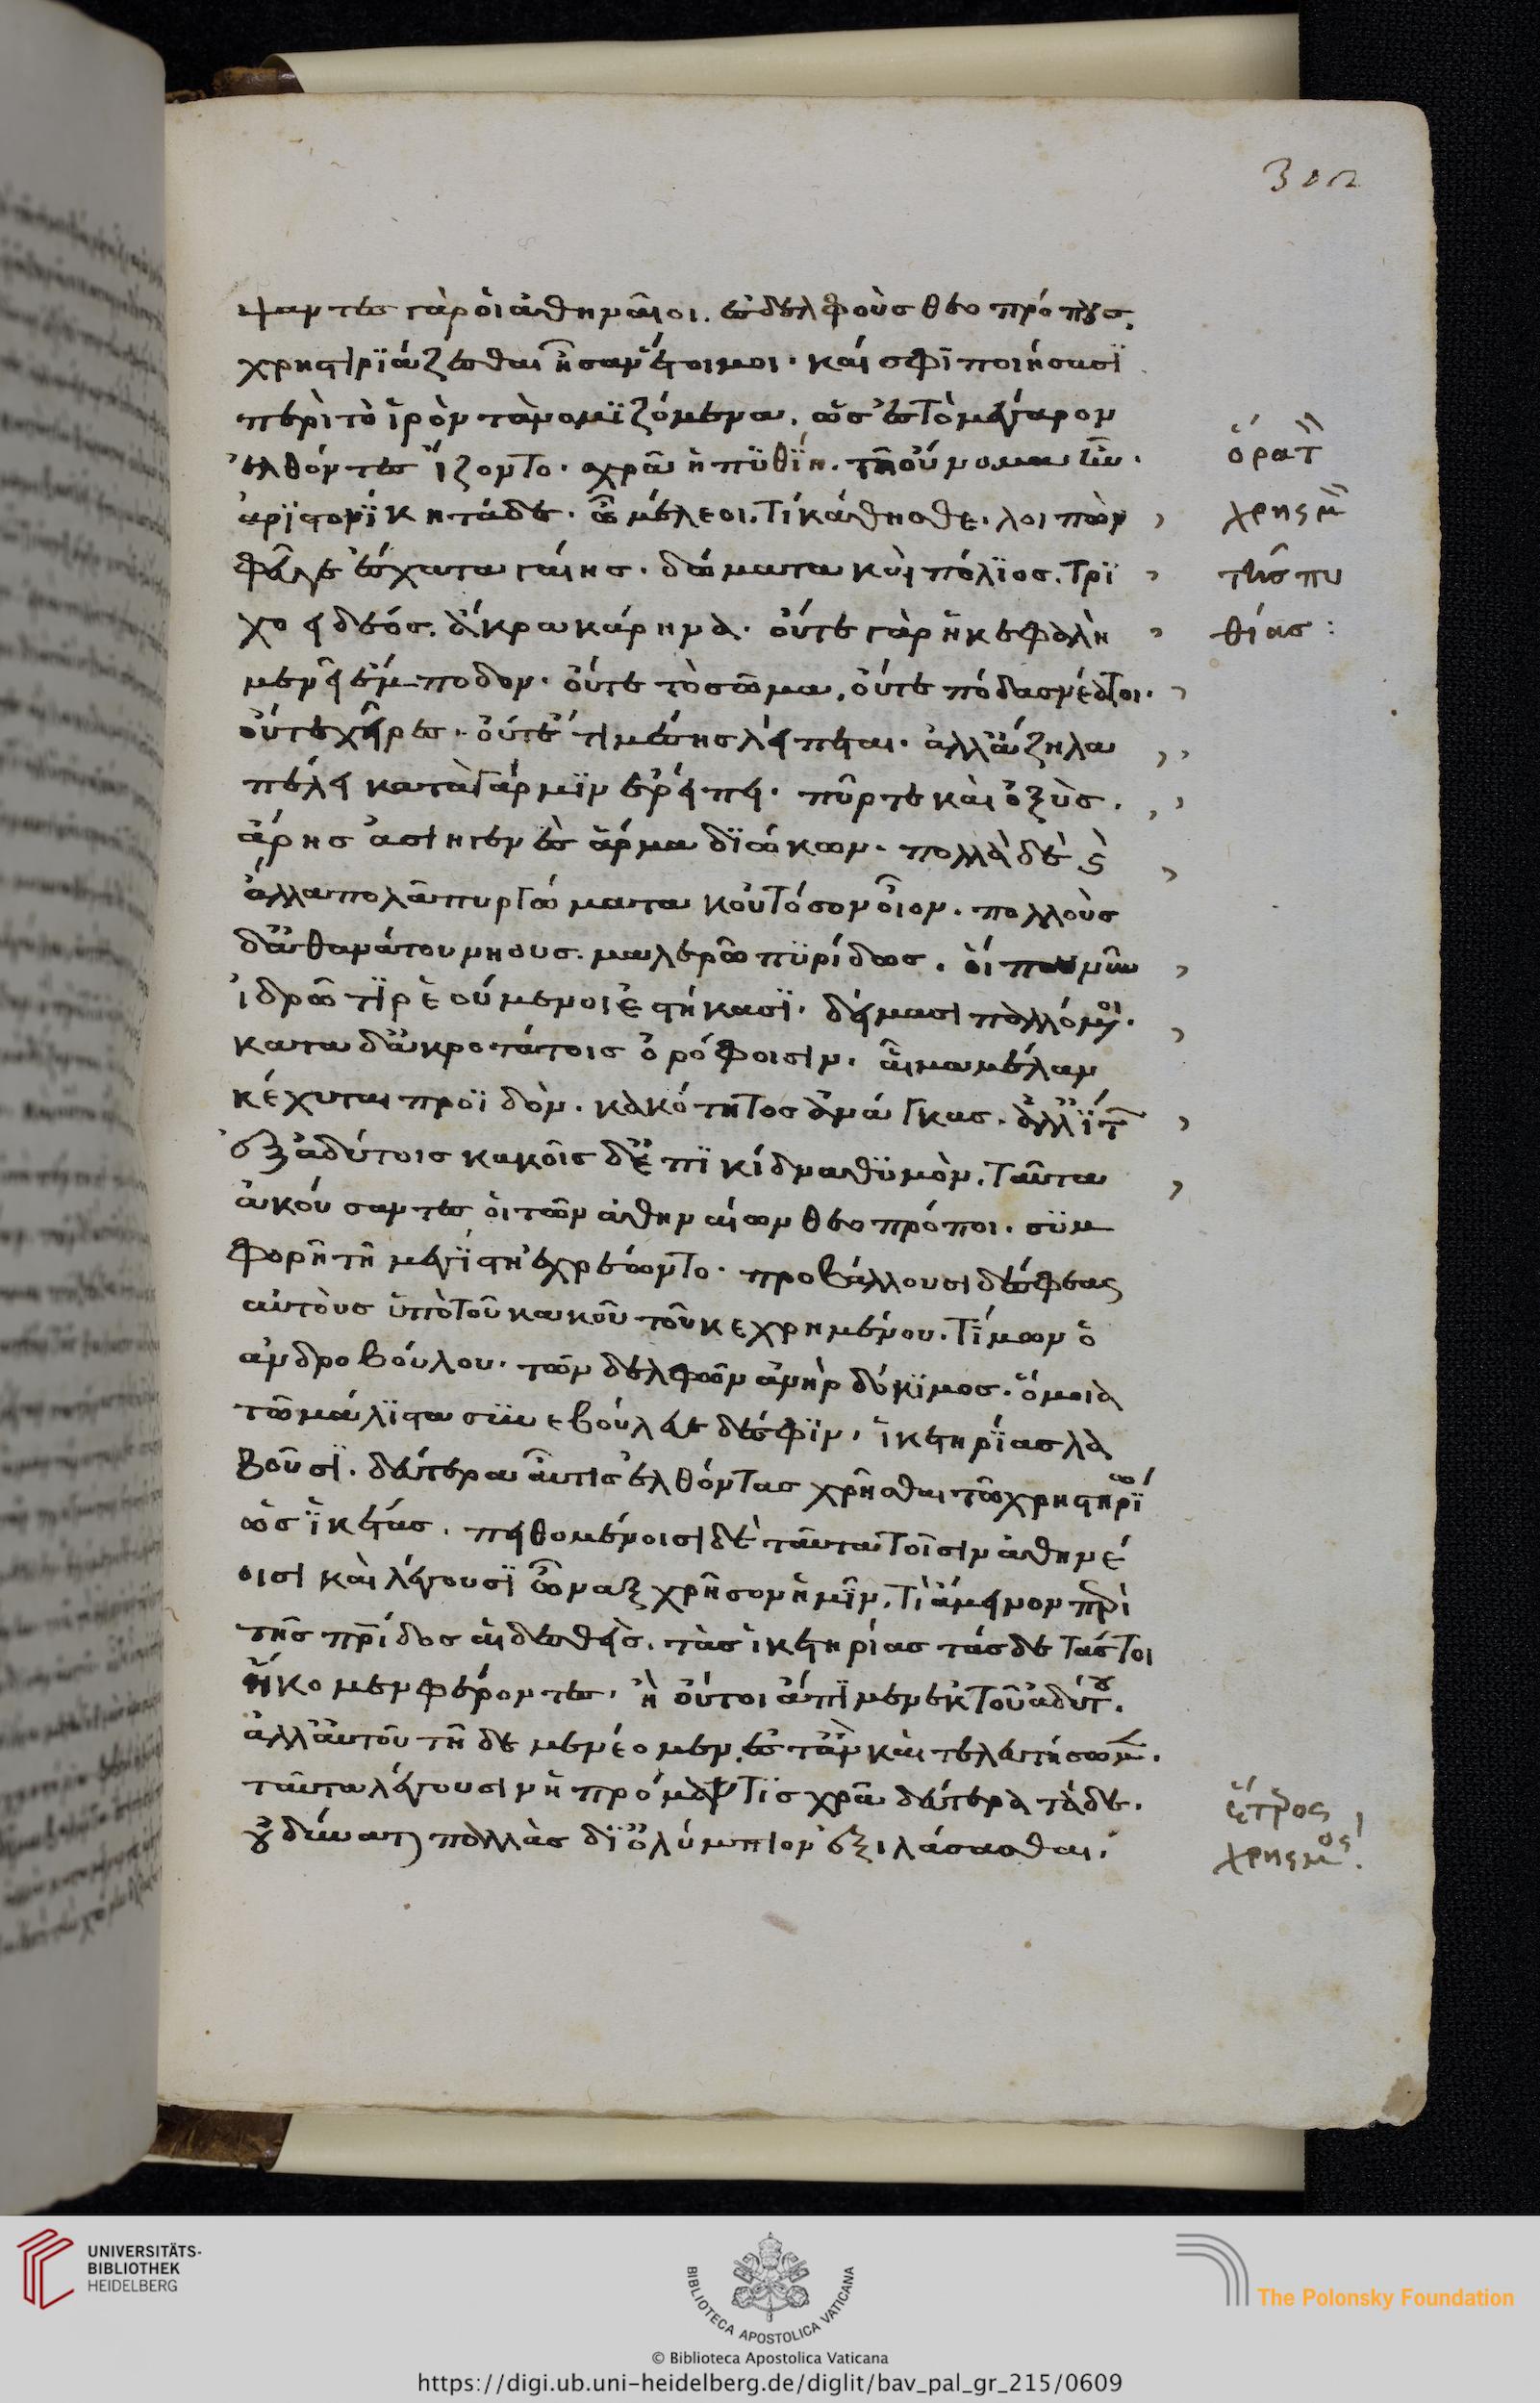 302
ψαντες γὰρ οἱ ἀθηναῖοι. ἐς δελφοὺς θεοπρόπους,
χρηστηριάζεσθαι ἦσαν ἕτοιμοι· καί σφι ποιήσασι
περὶ τὸ ἱρὸν τὰ νομιζόμενα, ὡς ἐς τὸ μέγαρον
ἐλθόντες ἵζοντο· χρᾶ ἡ πυθίη. τῆ οὔνομα ἦν.
ἀριστονίκη τάδε. ὦ μέλεοι. τί κάθησθε. λοιπὼν
φεῦγε ἔσχατα γαίης. δώματα καὶ πόλιος. τρι
χοειδέος. ἄκρα κάρηνα. οὔτε γὰρ ἡ κεφαλὴ
μενεῖ ἔμποδον. οὔτε τὸ σῶμα, οὔτε πόδας νέατοι.
οὔτε χεῖρες. οὔτέ τι μέσης λείπεται. ἀλλ' ἄζηλα
πέλει κατὰ γάρ μιν ἐρείπει. πῦρ τε καὶ ὀξὺς.
ἄρης ἀσιηγενὲς ἅρμα διώκων. πολλὰ δὲ καὶ
ἄλλα πολεῖ πυργώματα κοὐ τόσον οἶον. πολλοὺς
δ' ἀθανάτου νηους. μαλερῶ πυρί δώσει. οἵ που νῦν
ἱδρῶτι ῥεούμενοι ἑστήκασι. δείμασι παλλόμενοι.
κατα δ' ἀκροτάτοις ὀρόφοισιν. αἷμα μέλαν
κέχυται προϊδὸν. κακότητος ἀνάγκας. ἀλλ' ἴτον
ἐξ ἀδύτοις κακοῖς δ' ἐπικίδναθυμὸν. ταῦτα
ἀκούσαντες οἱ τῶν ἀθηναίων θεοπρόποι. συμ
φορῆ τῆ μεγίστη ἐχρέωντο. προβάλλουσι δέ σφεας
αὐτοὺς ὑπὸ τοῦ κακοῦ τοῦ κεχρημένου. τίμων ὁ
ἀνδροβούλου. τῶν δελφῶν ἀνὴρ δόκιμος. ὅμοια
τῶ μάλιστα συνεβούλευε δέ σφιν, ἱκετηρίας λα
βοῦσι. δεύτερα αὖτις ἐλθόντας χρῆσθαι τῶ χρηστηρίω
ὡς ἱκέτας. πειθομένοισι δὲ ταῦτα τοῖσιν ἀθηνέ
οισι καὶ λέγουσι ὦναξ χρῆσον ἡμῖν. τὶ ἄμεινον περὶ
τῆς πατρίδος αἰδεσθεὶς. τὰς ἱκετηρίας τάσδε τάς τοι
ἥκομεν φέροντες. ἢ οὔτοι ἄπιμεν ἐκ τοῦ ἀδύτου.
ἀλλ' αὐτοῦ τῆδε μενέομεν, ἔς τ' ἂν καὶ τελευτήσωμεν.
ταῦτα λέγουσιν ἡ πρόμαντις χρᾶ δεύτερα τάδε.
οὐ δύναται παλλὰς δί' ὀλύμπιον ἐξιλάσασθαι.
ὅρα τὸν
χρησμὸν
τῆς πυ
θίας:
ἕτερος
χρησμός.
UNIVERSITÄTS-
BIBLIOTHEK
HEIDELBERG
BIBLIOTECA APOSTOLICA VATICANA
The Polonsky Foundation
© Biblioteca Apostolica Vaticana
https://digi.ub.uni-heidelberg.de/diglit/bav_pal_gr_215/0609